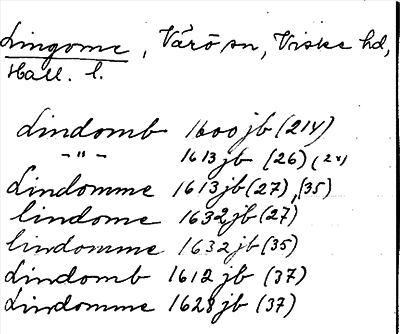 Lingome, Värö sn, Viske hd,
Hall. l.
Lindomb 1600 jb (214)
-"- 1613 jb (26) (24)
Lindomme 1613 jb (27), (35)
lindome 1632 jb (27)
lindomme 1632 jb (35)
Lindomb 1612 jb (37)
Lindomme 1628 jb (37)